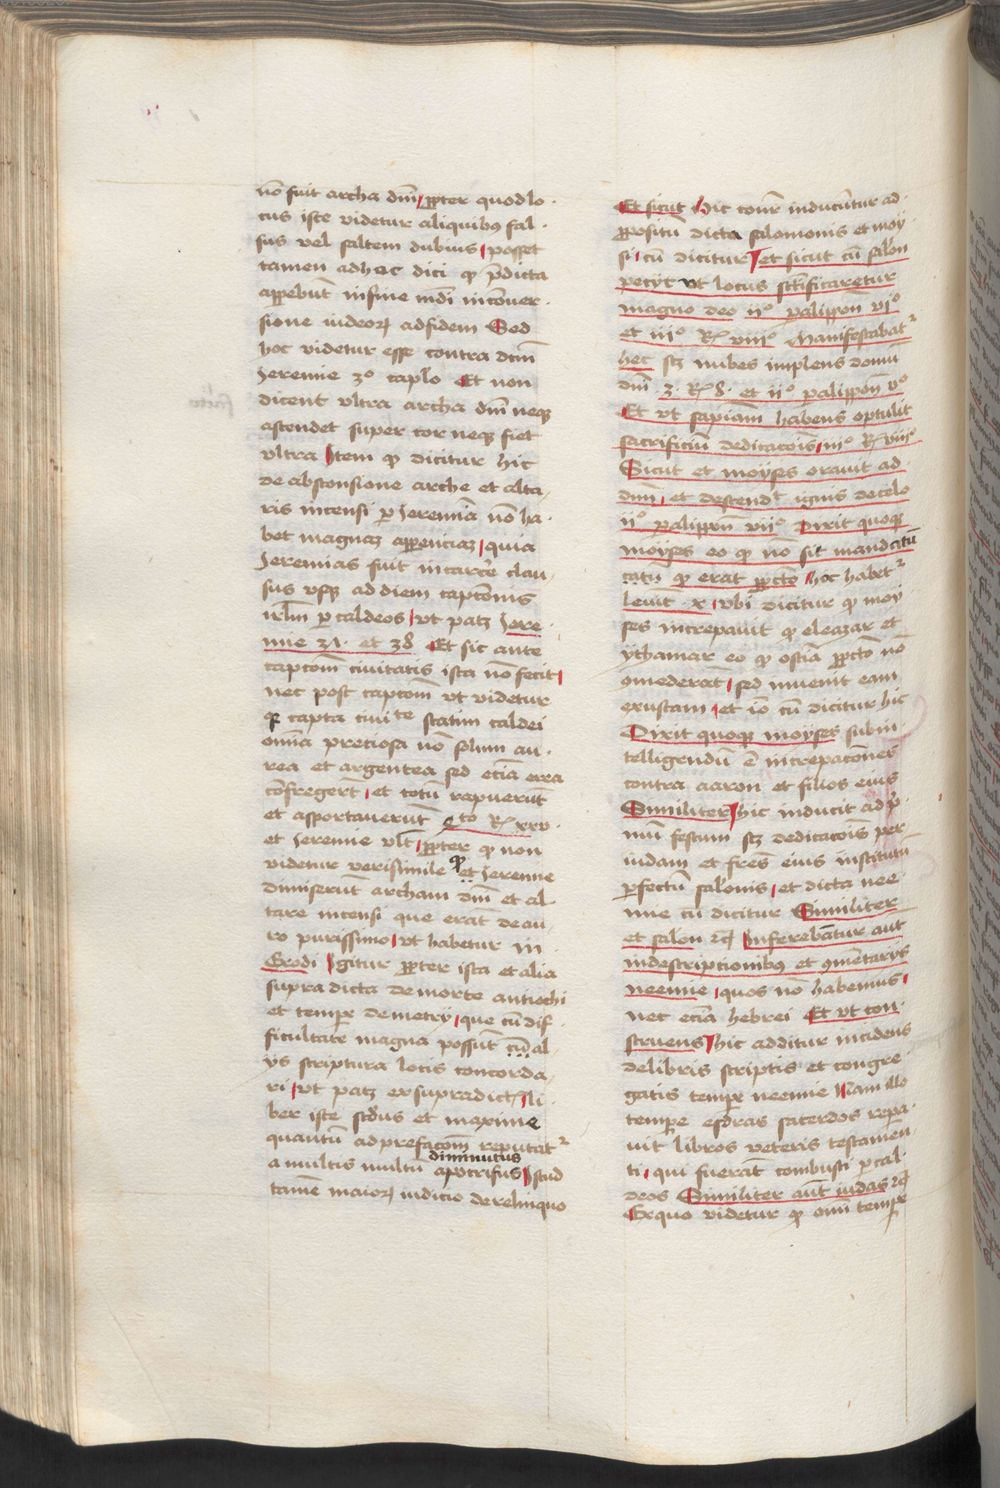 nō fuit archa dn̄i ꝓpter quod lo-
cus iste videtur aliquibꝰ fal-
sus vel saltem dubius posset
tamen adhec dici qꝫ p̄dicta
apparebūt in fine mūdi in cōuer-
sione iudeoꝝ ad fidem Sed
hoc videtur esse contra dcm̄
Jeremie 3º caplo Et non
dicent vltra archa dn̄i neqꝫ
ascendet super cor neqꝫ fiet
vltra Item qꝫ dicitur hic
de absconsione arche et alta-
ris incensi ꝑ Jeremiā nō ha-
bet magnaꝫ apparenciaꝫ quia
Jeremias fuit in carcere clau-
sus vsqꝫ ad diem captōnis
ierl̄m ꝑ caldeos vt patꝫ Jere-
mie 37 et 38 Et sic ante
captiom̄ ciuitatis ista nō fecit
nec post captiom̄ vt videtur
qꝫ capta ciuite statim caldei
omnia preciosa nō solum au-
rea et argentea sed eciā erea
cōfregerūt et totū rapuerūt
et asportauerūt 4to Rꝭ xxv
et Jeremie vlt̄ ꝓpter qꝫ non
videtur verisimile qꝫ et Jeremie
dimiserūt archam dn̄i et al-
tare incensi que erāt de au-
ro purissimo vt habetur in
Exodi Igitur ꝓpter ista et alia
supra dicta de morte antiochi
et tempe demetrij que cū dif-
ficultate magna possūt cū al-
ijs scriptura locis concorda-
ri vt patꝫ ex supradictꝭ li-
ber iste scd̄us et maxime
quantū ad prefacom̄ reputatᷣ
a multis multū diminutus apocrifus Istud
tamē maioꝝ iudicio derelinquo
Et sicut Hic conr̄ inducūtur ad
ꝓpositū dicta salomonis et moy-
si cū dicitur et sicut cū salōn
pecijt vt locus sctificaretur
magno deo iiº palippom̄ viº
et iiiº Rꝭ viiiº Manifestabatᷣ
hec scꝫ nubes implens domū
dn̄i 3 Rꝭ 8 et iiº palippom̄ vº
Et vt sapiām habens optulit
sacrificiū dedicacōis iiiº Rꝭ viiiº
Sicut et moyses orauit ad
dnm̄ et descendᵗ ignis de celo
iiº palippom̄ viiº Dixit quoqꝫ
moyses eo qꝫ nō sit mandcatū
catū qꝫ erat pccto hoc habetᷣ
leuit x vbi dicitur qꝫ moy-
ses increpauit qꝫ eleazar et
ythamar eo qꝫ ostiā pccto nō
ꝯmederāt sed inuenit eam
exustam et iō cū dicitur hic
Dixit quoqꝫ moyses subin-
telligendū ē increpacōnes
contra aaron et filios eius
Similiter Hic inducit ad p̄-
mū festum scꝫ dedicacōis per
iudam et fres̄ eius institutū
ꝑfectū salōonis et dicta nee-
mie cū dicitur Similiter
et salōn ⁊cꝭ Inferebantur aut̄
in descriptionibꝰ et ꝯmētarijs
neemie quos nō habemus
nec eciā hebrei Et vt con-
struens Hic additur incidens
de libris scriptis et congre-
gatis tempe neemie Nam illo
tempe esdras sacerdos repa-
uit libros veteris testamen-
ti qui fuerāt combusti ꝑ cal-
deos Similiter aut̄ iudas ⁊cꝭ
Ex quo videtur qꝫ om̄i tempe